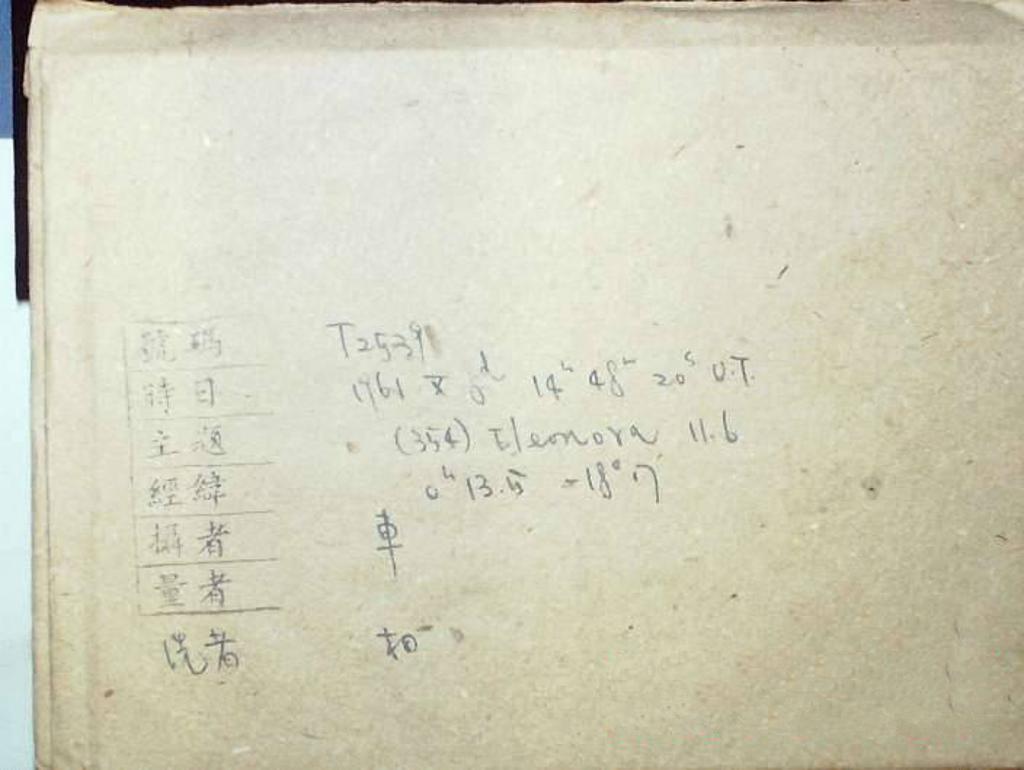 號碼 T2539
時日 1961 X 8ᵈ 14ʰ 48ᵐ 20ˢ U.T.
主題 (354) Eleonora 11.6
經緯 0ʰ 13.5 -18°17
攝者 車
量者
洗者